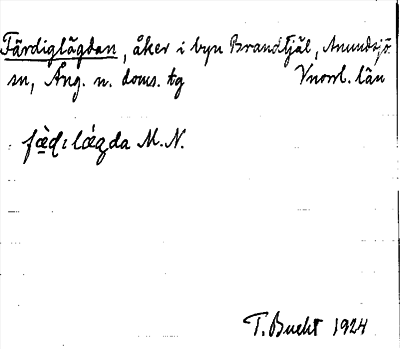 Färdiglägdan, åker i byn Brandfjäl, Anundsjö
sn, Ång. n. doms. tg Vnorrl. län
fæ̀dılǽgda M.N.
T. Bucht 1924